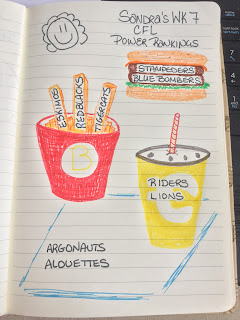 Sandra's WK 7
CFL
Power Rankings
STAMPEDERS
BLUE BOMBERS
ESKIMOS
REDBLACKS
TIGERCATS
B
RIDERS
LIONS
ARGONAUTS
ALOUETTES